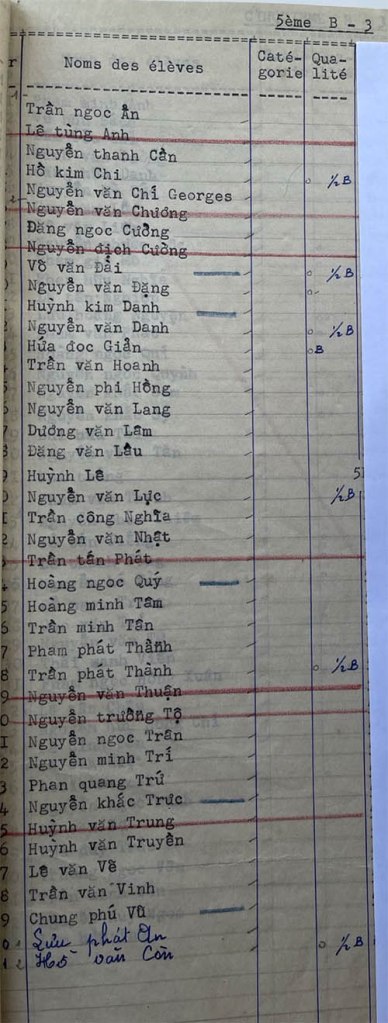 5ème B - 3
Noms des élèves Caté- Qua-
gorie lité
Trần ngọc Ẩn
Lê tùng Anh
Nguyễn thanh Cần
Hồ kim Chi ½B
Nguyễn văn Chí Georges
Nguyễn văn Chương
Đăng ngọc Cường
Nguyễn đich Cường
Võ văn Đãi ½B
Nguyễn văn Đặng
Huỳnh kim Danh
Nguyễn văn Danh ½B
Hứa đoc Giản B
Trần văn Hoanh
Nguyễn phi Hồng
Nguyễn văn Lang
Dương văn Lâm
Đăng văn Lầu
9 Huỳnh Lê 5
Nguyễn văn Lực ½B
I Trần công Nghĩa
2 Nguyễn văn Nhật
Trần tấn Phát
4 Hoàng ngọc Quý
5 Hoàng minh Tâm
6 Trần minh Tân
7 Pham phát Thành
8 Trần phát Thành ½B
9 Nguyễn văn Thuận
0 Nguyễn trường Tộ
I Nguyễn ngọc Trân
2 Nguyễn minh Trí
3 Phan quang Trứ
4 Nguyễn khắc Trực
5 Huỳnh văn Trung
6 Huỳnh văn Truyền
7 Lê văn Vẽ
8 Trần văn Vinh
9 Chung phú Vũ
0 Lưu phát An ½B
1 Hồ văn Còn